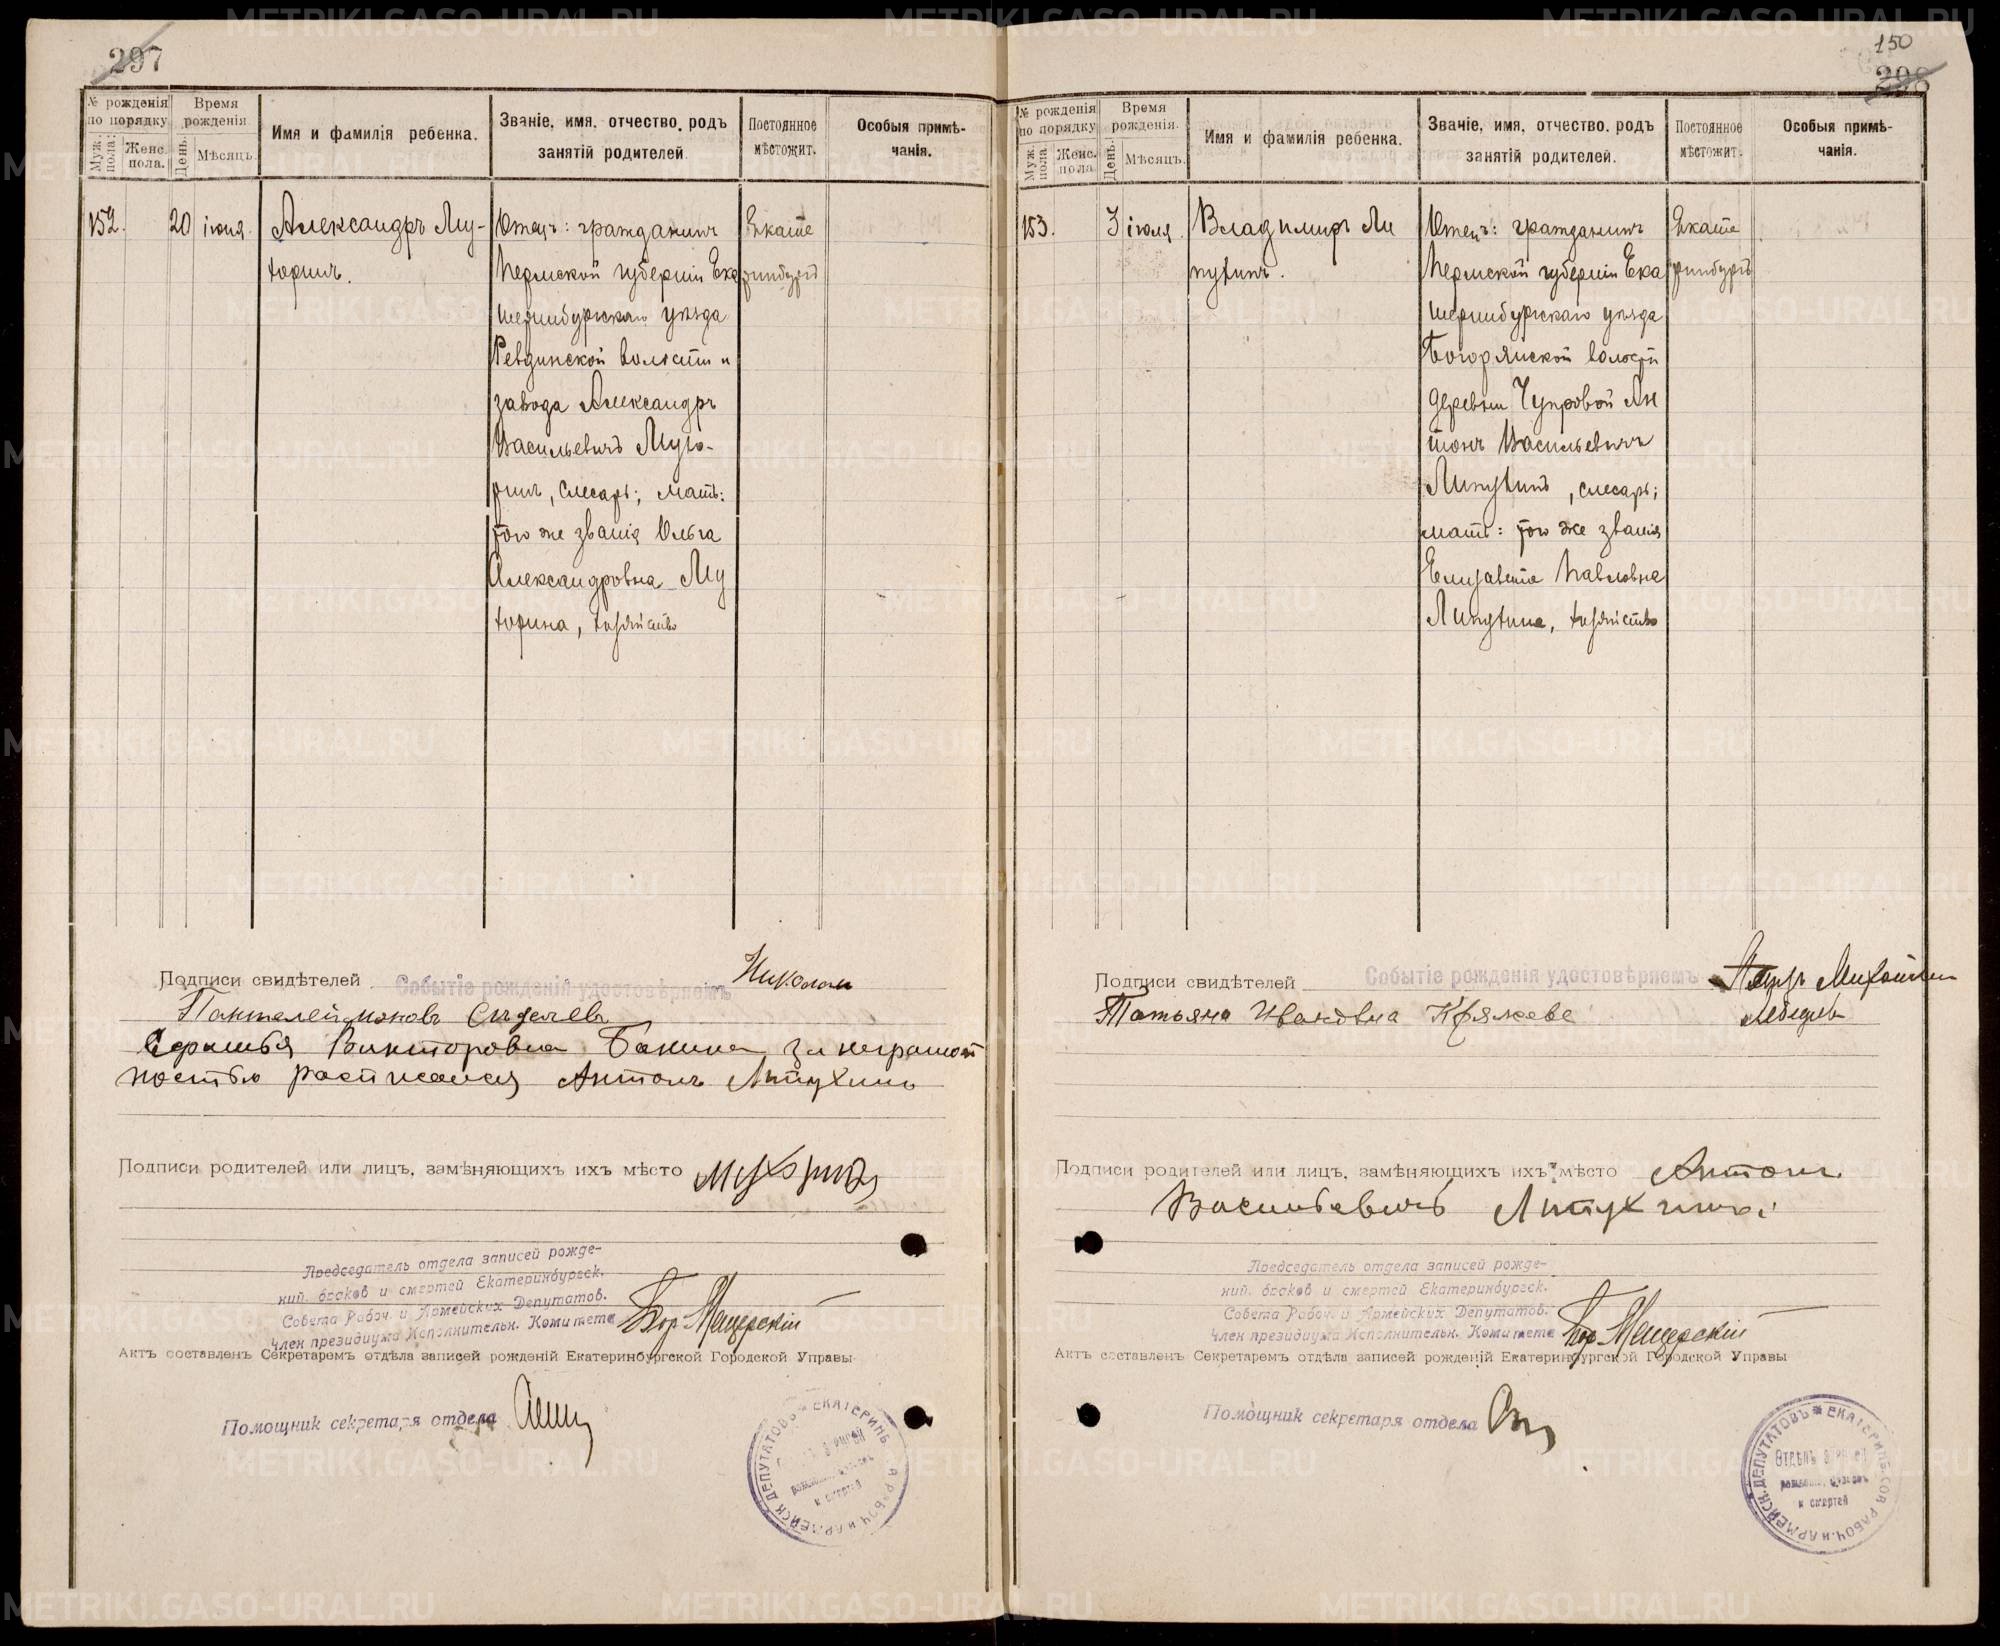 297
№ рожденія по порядку
Муж. пола.
Женс. пола.
Время рожденія
День.
Мѣсяцъ.
Имя и фамилія ребенка.
Званіе, имя, отчество, родъ занятій родителей.
Постоянное мѣстожит.
Особыя примѣчанія.
152.
20
іюня
Александръ Му-
хоринъ.
Отецъ: гражданинъ
Пермской губерніи Ека
теринбургскаго уѣзда
Ревдинской волости и
завода Александръ
Васильевичъ Мухо-
ринъ, слесарь; мать:
того же званія Ольга
Александровна Му
хорина, хозяйство
Екате
ринбургъ
Подписи свидѣтелей
Событіе рожденій удостовѣряемъ
Николай
Пантелеймоновъ
Викторовна
за неграмот
ностью расписался Антонъ Липухинъ
Подписи родителей или лицъ, замѣняющихъ ихъ мѣсто
Мухоринъ
Председатель отдела записей рожде-
ний, браков и смертей Екатеринбургск.
Совета Рабоч. и Армейских Депутатов.
Член президиума Исполнительн. Комитета
Мещерскій
Актъ составленъ Секретаремъ отдѣла записей рожденій Екатеринбургской Городской Управы
Помощник секретаря отдела
150
298
№ рожденія по порядку
Муж. пола.
Женс. пола
Время рожденія.
День.
Мѣсяцъ.
Имя и фамилія ребенка.
Званіе, имя, отчество, родъ занятій родителей.
Постоянное мѣстожит.
Особыя примѣчанія.
153.
3
іюля
Владимиръ Ли
пухинъ.
Отецъ: гражданинъ
Пермской губерніи Ека
теринбургскаго уѣзда
волости
деревни Чупровой Ан
тонъ Васильевичъ
Липухинъ, слесарь;
мать: того же званія
Елизавета Павловна
Липухина, хозяйство
Екате
ринбургъ
Подписи свидѣтелей
Событіе рожденія удостовѣряемъ
Татьяна Ивановна
Лебедевъ
Подписи родителей или лицъ, замѣняющихъ ихъ мѣсто
Антонъ
Васильевичъ Липухинъ
Председатель отдела записей рожде-
ний, браков и смертей Екатеринбургск.
Совета Рабоч. и Армейских Депутатов.
Член президиума Исполнительн. Комитета
Мещерскій
Актъ составленъ Секретаремъ отдѣла записей рожденій Екатеринбургской Городской Управы
Помощник секретаря отдела
ЕКАТЕРИНБ. СОВ. РАБОЧ. И АРМЕЙСК. ДЕПУТАТОВЪ
METRIKI.GASO-URAL.RU